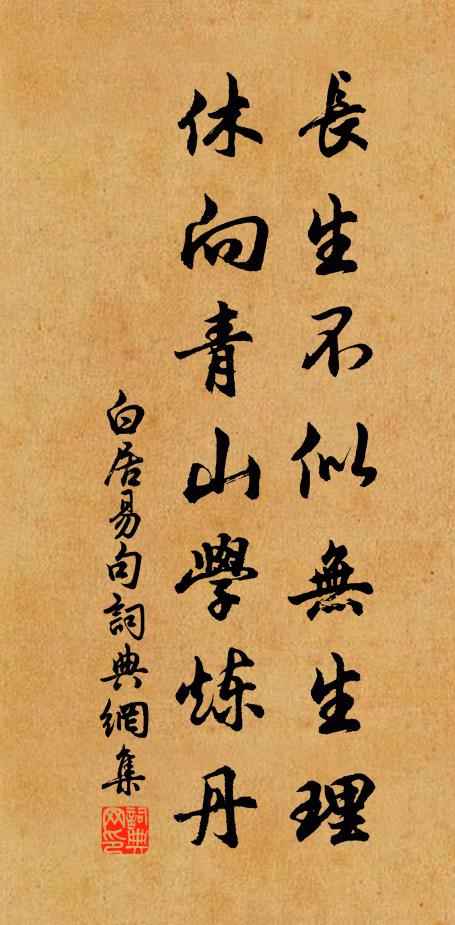 長生不似無生理
休向青山學煉丹
白居易句詞典網集
詞典
网印